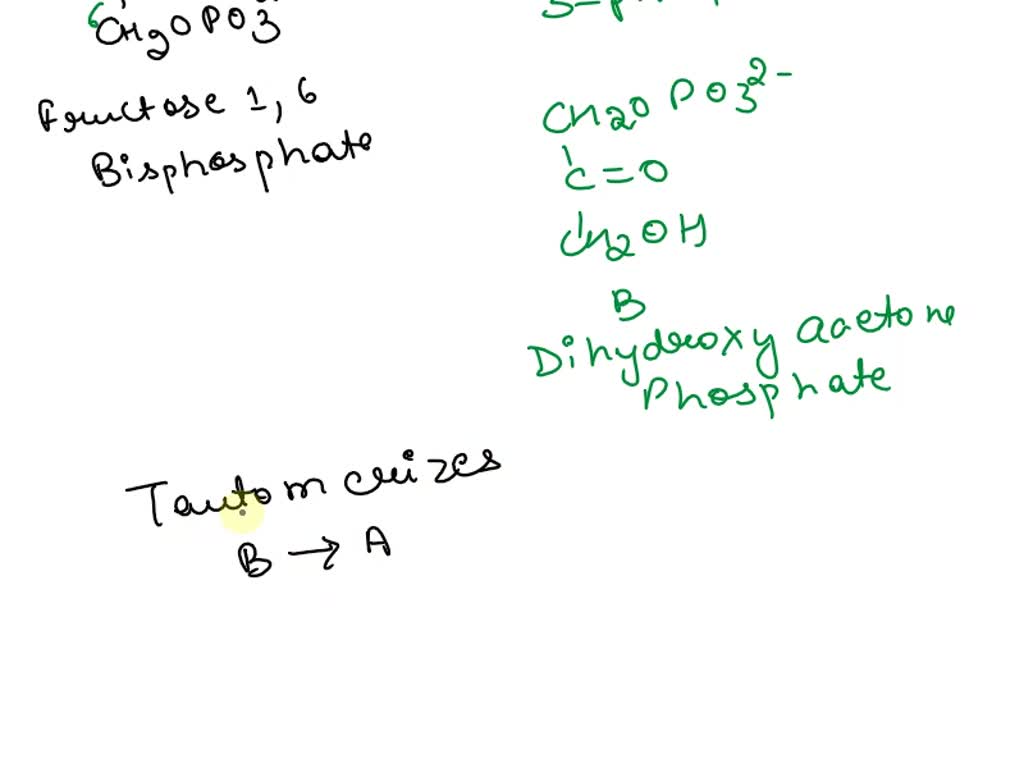 6
CH2OPO3
Fructose 1, 6
Bisphosphate
CH2OPO3 2-
C=O
CH2OH
B
Dihydroxy Acetone
Phosphate
Tautomerizes
B → A